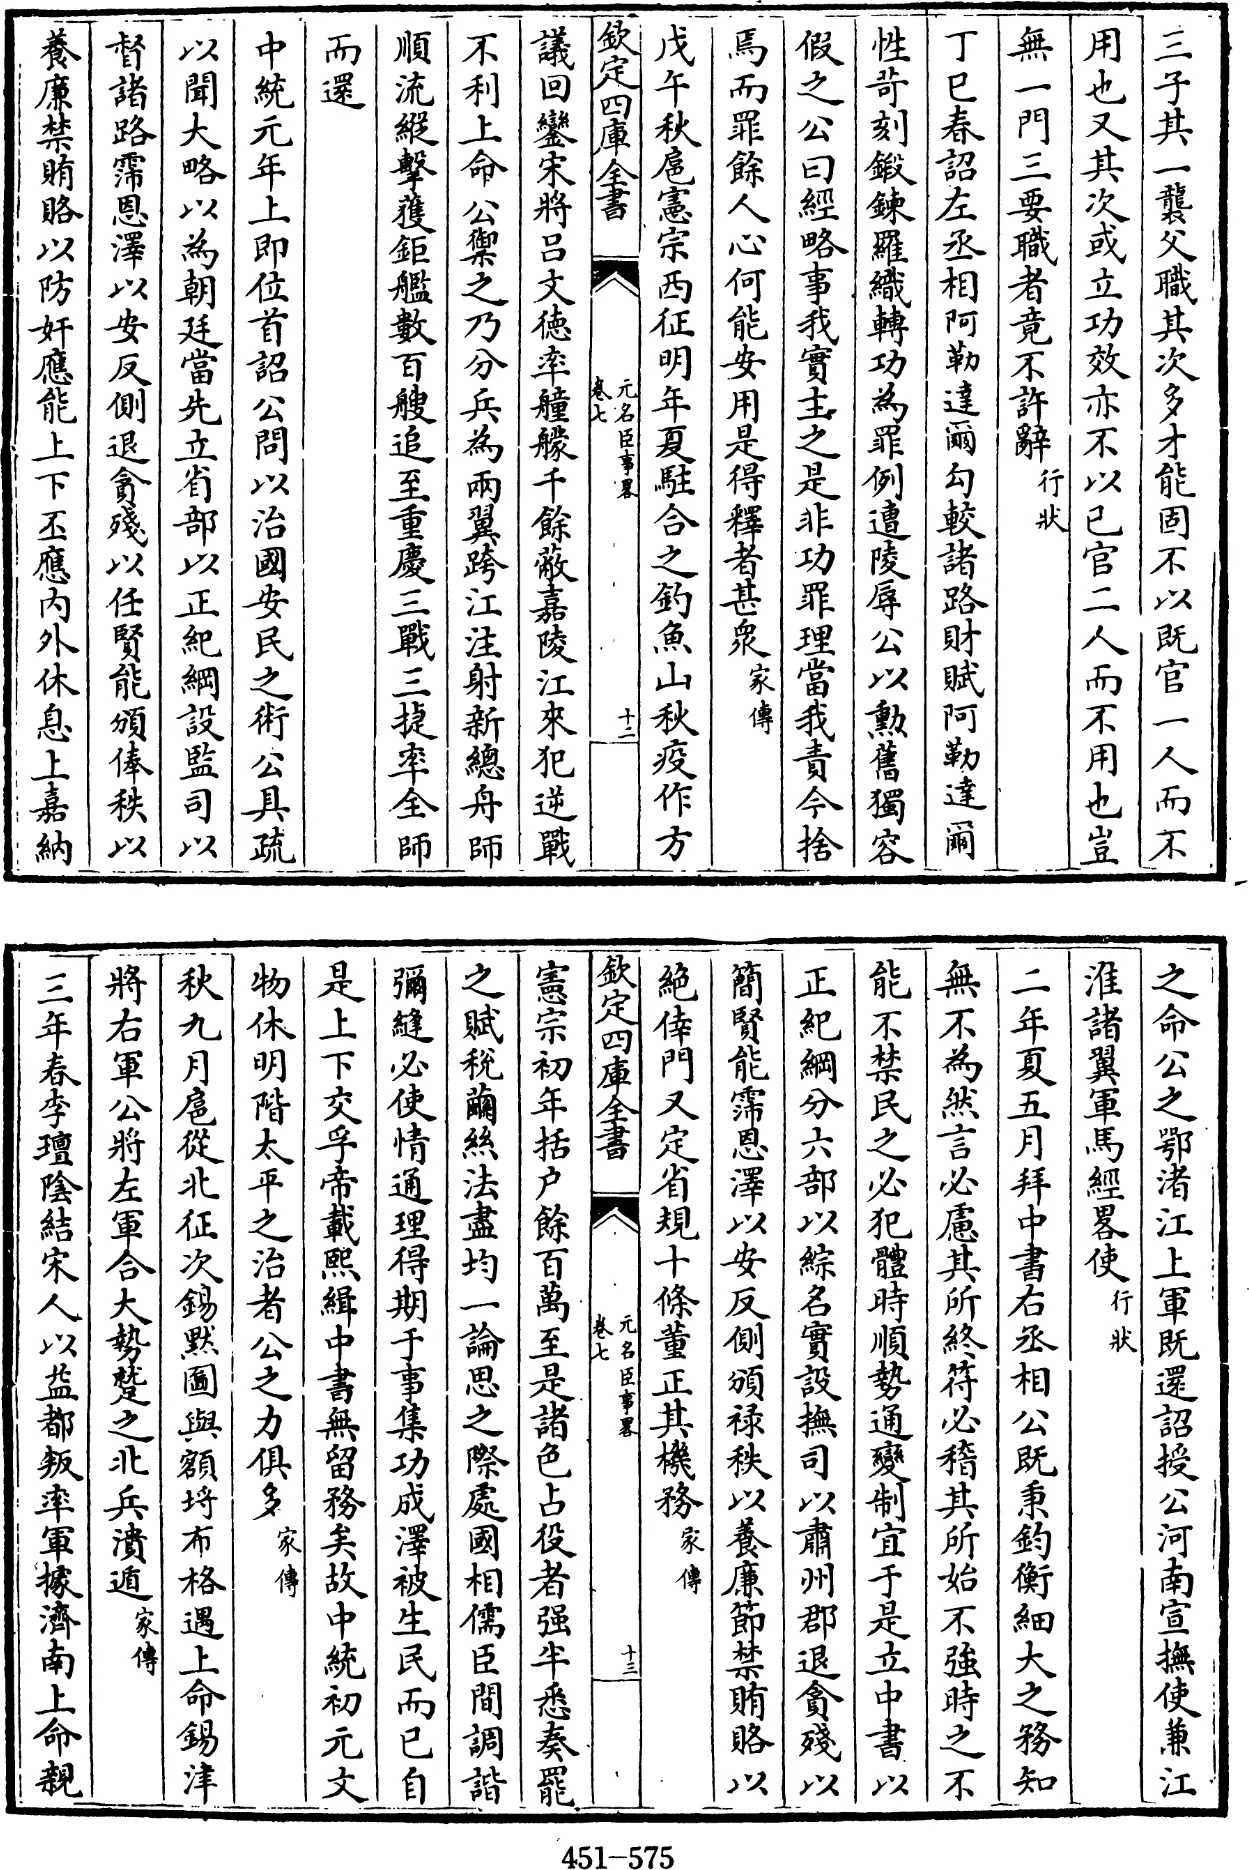 三子其一襲父職其次多才能固不以既官一人而不
用也又其次或立功效亦不以已官二人而不用也豈
無一門三要職者竟不許辭行狀
丁巳春詔左丞相阿勒達爾勾較諸路財賦阿勒達爾
性苛刻鍛鍊羅織轉功為罪例遭陵辱公以勲舊獨容
假之公曰經略事我實主之是非功罪理當我責今捨
焉而罪餘人心何能安用是得釋者甚衆家傳
戊午秋扈憲宗西征明年夏駐合之釣魚山秋疫作方
欽定四庫全書
元名臣事畧
卷七
十二
議回鑾宋將吕文德率艟艨千餘蔽嘉陵江來犯逆戰
不利上命公禦之乃分兵為兩翼跨江注射新總舟師
順流縱擊獲鉅艦數百艘追至重慶三戰三捷率全師
而還
中統元年上即位首詔公問以治國安民之術公具疏
以聞大略以為朝廷當先立省部以正紀綱設監司以
督諸路霈恩澤以安反側退貪殘以任賢能頒俸秩以
養廉禁賄賂以防奸應能上下丕應内外休息上嘉納
之命公之鄂渚江上軍既還詔授公河南宣撫使兼江
淮諸翼軍馬經畧使行狀
二年夏五月拜中書右丞相公既秉鈞衡細大之務知
無不為然言必慮其所終符必稽其所始不強時之不
能不禁民之必犯體時順勢通變制宜于是立中書以
正紀綱分六部以綜名實設撫司以肅州郡退貪殘以
簡賢能霈恩澤以安反側頒禄秩以養廉節禁賄賂以
絶倖門又定省規十條董正其機務家傳
欽定四庫全書
元名臣事畧
卷七
十三
憲宗初年括户餘百萬至是諸色占役者强半悉奏罷
之賦稅繭絲法盡均一論思之際處國相儒臣間調諧
彌縫必使情通理得期于事集功成澤被生民而已自
是上下交孚帝載熙緝中書無留務矣故中統初元文
物休明階太平之治者公之力俱多家傳
秋九月扈從北征次錫默圖與額埓布格遇上命錫津
將右軍公將左軍合大勢蹙之北兵潰遁家傳
三年春李璮陰結宋人以益都叛率軍據濟南上命親
451-575